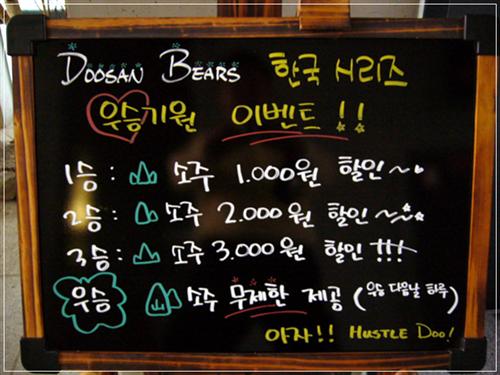 DOOSAN BEARS 한국 시리즈
우승기원 이벤트!!
1승 : 소주 1.000원 할인~
2승 : 소주 2.000원 할인~
3승 : 소주 3.000원 할인!!!
우승 소주 무제한 제공 (우승 다음날 하루)
아자!! HUSTLE DOO!